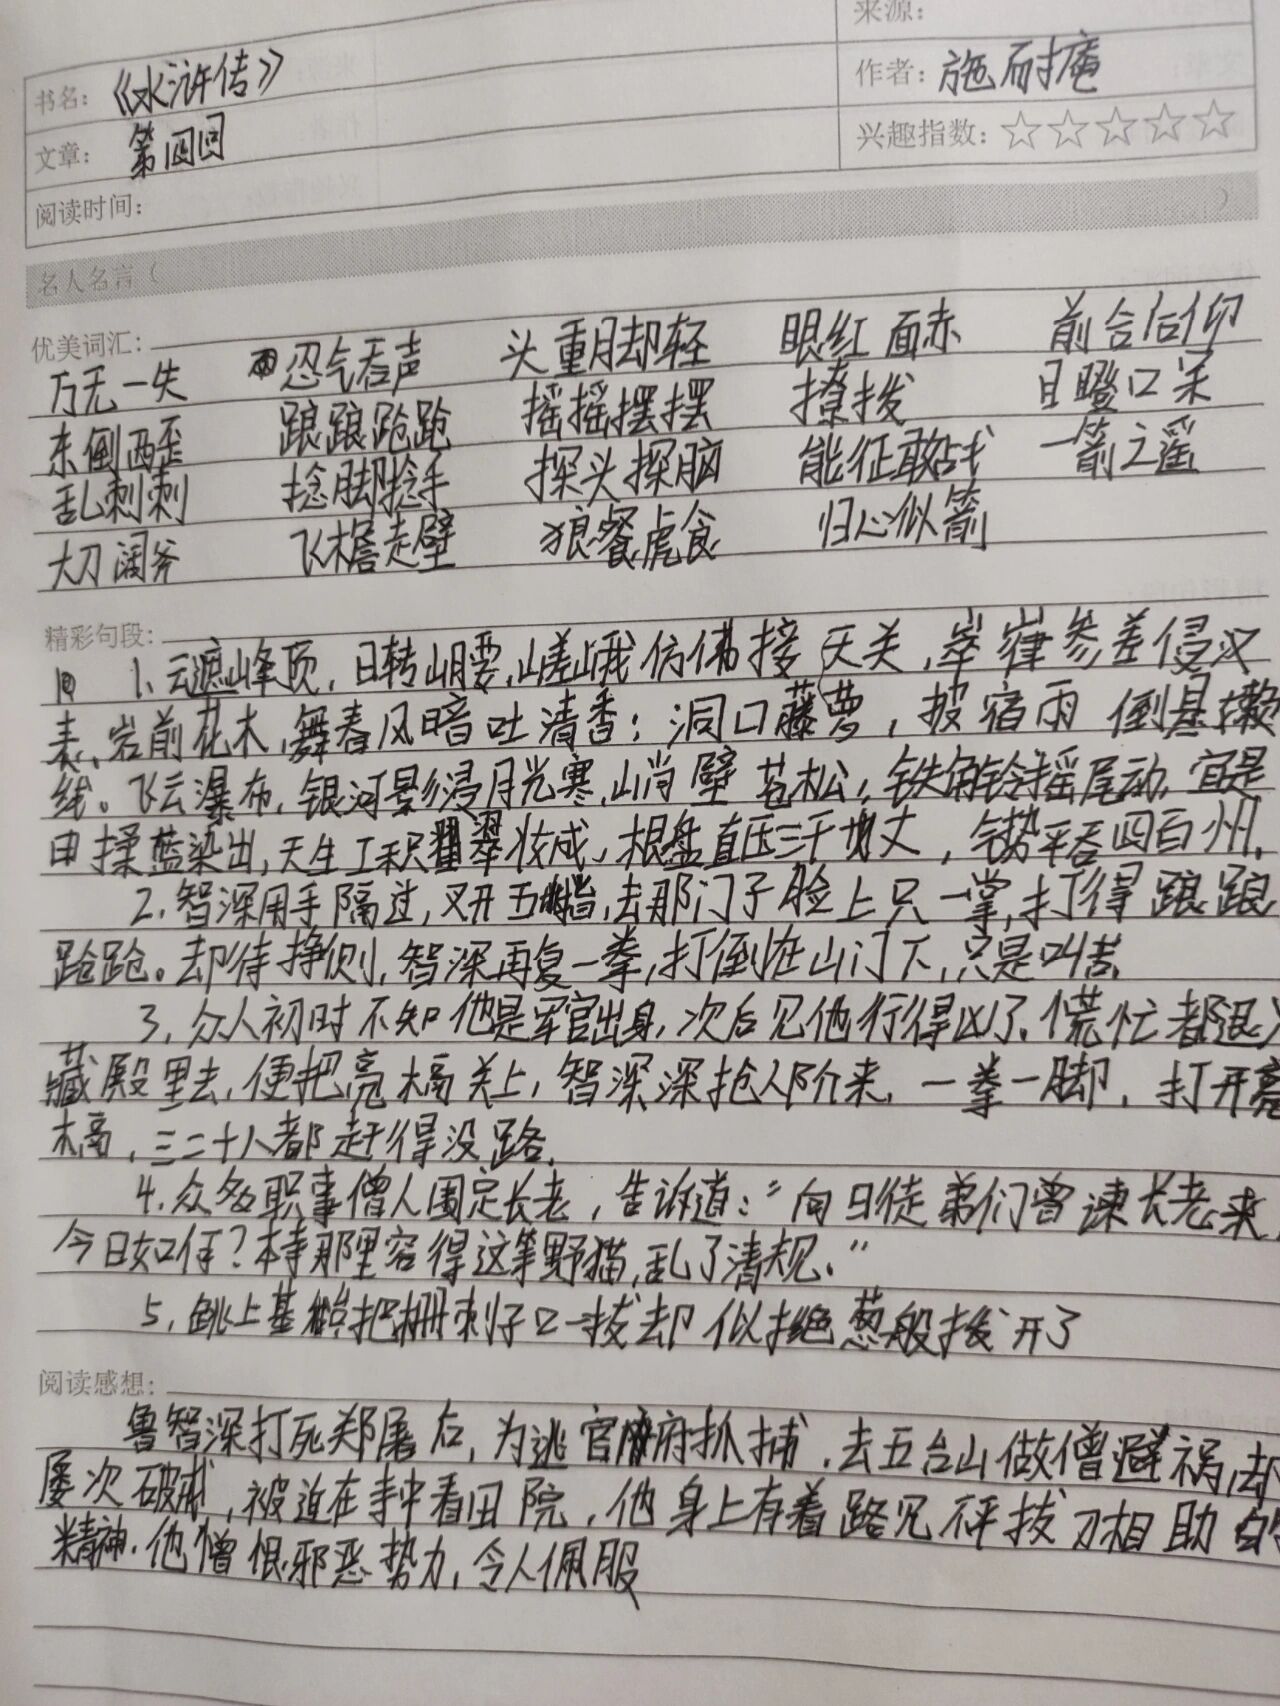 来源：
书名：《水浒传》 作者：施耐庵
文章：第四回 兴趣指数：☆☆☆☆☆
阅读时间：
名人名言（ ）
优美词汇：
万无一失 忍气吞声 头重脚轻 眼红面赤 前合后仰
东倒西歪 踉踉跄跄 摇摇摆摆 撩拨 目瞪口呆
乱刺刺 捻脚捻手 探头探脑 能征敢战 一箭之遥
大刀阔斧 飞檐走壁 狼餐虎食 归心似箭
精彩句段：
1、云遮峰顶，日转山腰，嵯峨仿佛接天关，崒嵂参差侵汉
表、岩前花木，舞春风暗吐清香；洞口藤萝，披宿雨倒悬嫩
线。飞云瀑布，银河影浸月光寒，峭壁苍松，铁角铃摇尾动，宜是
由揉蓝染出，天生工积翠妆成，根盘直压三千丈，气势平吞四百州，
2、智深用手隔过，叉开五指，去那门子脸上只一掌，打得踉踉
跄跄。却待挣侧，智深再复一拳，打倒在山门下，只是叫苦，
3、众人初时不知他是军官出身，次后见他行得凶了，慌忙都退入
藏殿里去，便把亮槅关上，智深深抢入阶来，一拳一脚，打开亮
槅，三二十人都赶得没路，
4、众多职事僧人围定长老，告诉道："向日徒弟们曾谏长老来，
今日如何？本寺那里容得这等野猫，乱了清规。"
5、跳上基台把栅刺子口一拔却似撧葱般拔开了
阅读感想：
鲁智深打死郑屠后，为逃官府抓捕，去五台山做僧避祸，却
屡次破戒，被迫在寺中看田院，他身上有着路见不平拔刀相助的
精神，他憎恨邪恶势力，令人佩服